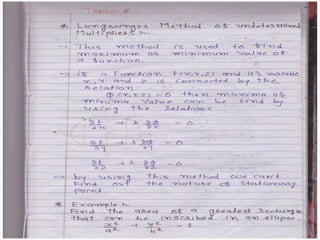 Topic-5
* Langranges Method of undetermined
Multipliess :-
→ This method is used to find
maximum or minimum value of
a function.
→ if a function f(x,y,z) and it's variable
x, y and z is connected by the
relation
Φ(x,y,z)=0 then maxima or
minima value can be find by
using the relations
∂f/∂x + λ ∂Φ/∂x = 0
∂f/∂y + λ ∂Φ/∂y = 0
∂f/∂z + λ ∂Φ/∂z = 0
→ by using this method we can't
find out the nature of stationary
point
* Example :-
Find the area of a greatest rectangle
that can be inscribed in an ellipse
x²/a² + y²/b² = 1